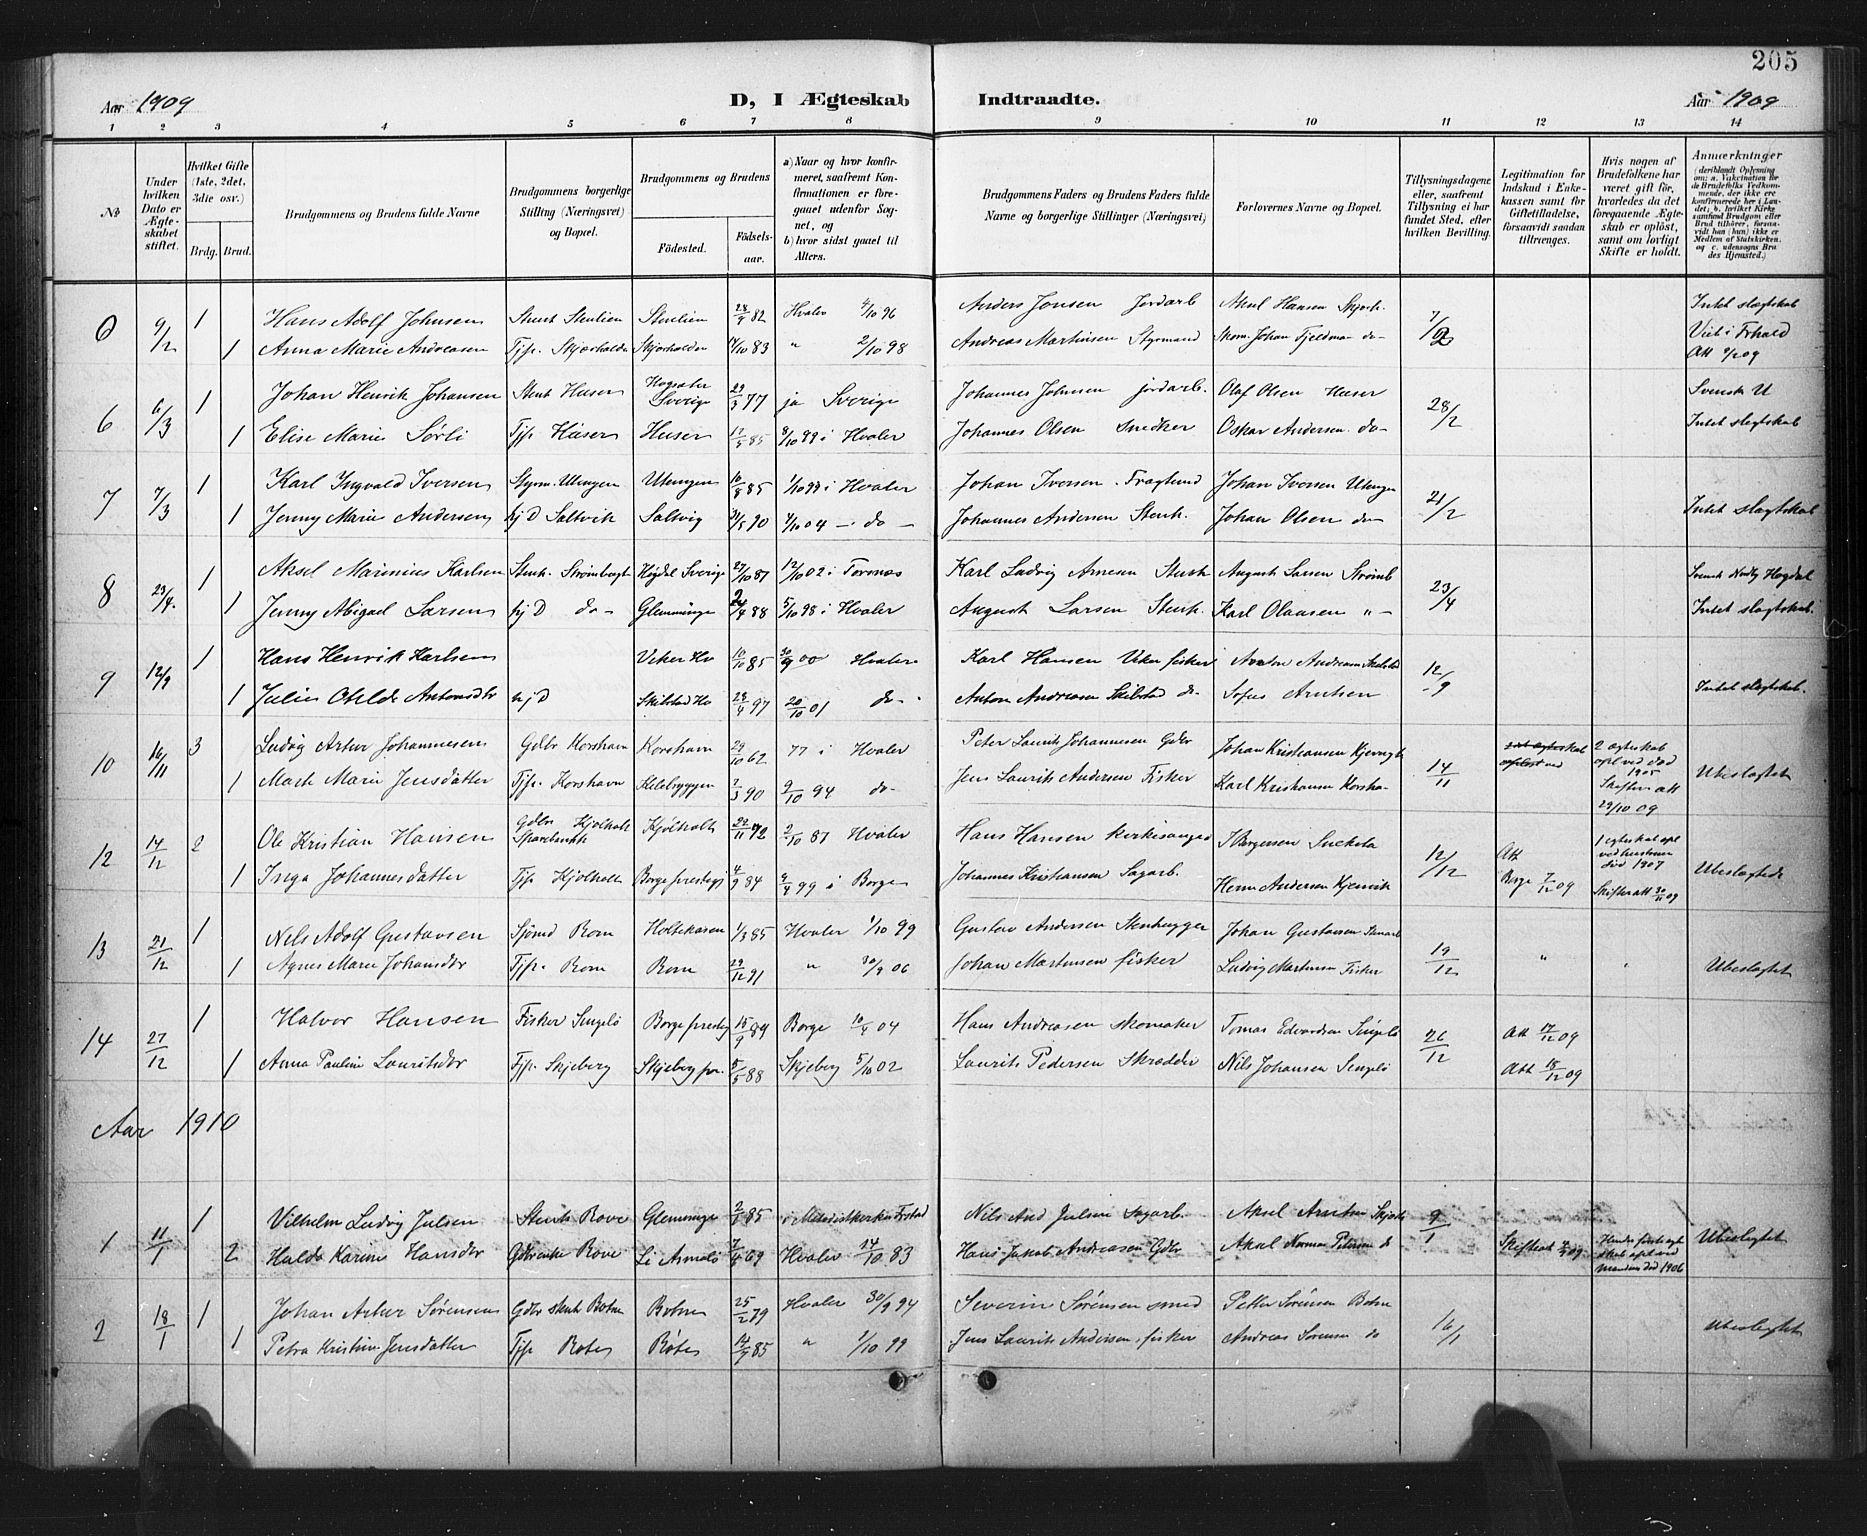 205
Aar 1909 D, I Ægteskab Indtraadte. Aar 1909
1 2 3 4 5 6 7 8 9 10 11 12 13 14
No
Under hvilken Dato er Ægteskabet stiftet.
Hvilket Gifte (1ste, 2det, 3die osv.)
Brdg. Brud.
Brudgommens og Brudens fulde Navne
Brudgommens borgerlige Stilling (Næringsvei) og Bopæl.
Brudgommens og Brudens
Födested. Födselsaar.
a) Naar og hvor konfirmeret, saafremt Konfirmationen er foregaaet udenfor Sognet, og b) hvor sidst gaaet til Alters.
Brudgommens Faders og Brudens Faders fulde Navne og borgerlige Stillinger (Næringsvei)
Forlovernes Navne og Bopæl.
Tillysningsdagene eller, saafremt Tillysning ei har fundet Sted, efter hvilken Bevilling.
Legitimation for Indskud i Enkekassen samt for Giftetilladelse, forsaavidt saadan tiltrænges.
Hvis nogen af Brudefolkene har været gift før, hvorledes da det foregaaende Ægteskab er oplöst, samt om lovligt Skifte er holdt.
Anmærkninger (deriblandt Oplysning om: a. Vakcination for de Brudefolks Vedkommende, der ikke ere konfirmerede her i Landet; b. hvilket Kirkesamfund Brudgom eller Brud tilhörer, forsaavidt han (hun) ikke er Medlem af Statskirken. og c. udensogns Brudes Hjemsted.)
9/2 1 Hans Adolf Johnsen Stenh Stenlien Stenlien 82 Hvaler 4/10 96 Anders Jonsen Jordarb Aksel Hansen Intet slægtskab
1 Anna Marie Andreasen Tjp. Skjærhalden Skjærhalden /10 83 " 2/10 98 Andreas Martinsen Styrmand Johan Fjeldman do Viet i Frhald
Att 9/2 09
6 6/3 1 Johan Henrik Johansen Stenh Huser Sverige 29/3 77 ja Sverige Johannes Johnsen jordarb. Olaf Olsen Huser 28/2 Svensk U
1 Elise Marie Sørli Tjp. Huser Huser 85 8/10 99 i Hvaler Johannes Olsen Snedker Oskar Andersen do Intet slægtskab
7 7/3 1 Karl Ingvald Iversen Styrm. Utengen Utengen 10/8 85 1/10 99 i Hvaler Johan Iversen Johan Iversen Utengen 21/2
1 Jenny Marie Andersen hj D Saltvik Saltvig 31/5 90 /10 04 - do - Johannes Andersen Stenh. Johan Olsen do Intet slægtskab
8 23/4. 1 Aksel Marinius Karlsen Stenh. Høgdal Sverige 27/10 87 12/10 02 i Karl Ludvig Arnesen Stenh August Larsen Strømb 23/4 Svensk Høgdal
1 Jenny Abigael Larsen hj D do Glemminge 88 5/10 98 i Hvaler August Larsen Stenh. Karl Olausen " Intet slægtskab.
9 12/9 1 Hans Henrik Karlsen Viker Hv 10/10 85 30/9 00 Hvaler Karl Hansen Viker fisker Anton Andreasen Skibstad 12/9
1 Julie Otilde Antonsdtr hj D Skibstad Hv 97 20/10 01 do Anton Andreasen Skibstad do Sofus Arntsen Intet slægtskab.
10 16/11 3 Ludvig Artur Johannesen Gdbr Korshavn Korshavn 29/10 62 77 i Hvaler Peter Laurits Johannesen Gdbr Johan Kristiansen 14/11 2 ægteskab opl ved død 1905
1 Marie Jensdatter Tjp. Korshavn 2/3 90 9/10 94 do Jens Laurits Andersen Fisker Karl Kristiansen Korsha- Skifteatt 29/10 09 Ubeslægtet
12 14/12 2 Ole Kristian Hansen Gdbr Kjølholt Kjølholt 72 2/10 87 Hvaler Hans Hansen kirkesanger 12/12 Att 1 egteskab opl ved hustruens død 1907
1 Inga Johannesdatter Tjp Kjølholt Borge prestegj 4/9 84 99 i Borge Johannes Kristiansen Sagarb. Herm Andersen Borge 7/12 09 Skifteatt 09 Ubeslægtede
13 21/12 1 Nils Adolf Gustavsen Sjømd Rom Holtekasen 1/3 85 Hvaler 1/10 99 Gustav Andersen Stenhugger Johan Gustavsen Stenarb 19/12 "
1 Agnes Marie Johansdtr Tjp. Rom Rom 29/12 91 " 30/9 06 Johan Martinsen fisker Ludvig Martinsen Fisker Ubeslægtet
14 27/12 1 Halvor Hansen Fisker Singelø Borge presteg 15/9 84 Borge 04 Hans Andreasen skomaker Tomas Edvardsen Singelø 26/12 Att 17/12 09
1 Anna Pauline Lauritsdtr Tjp. Skjeberg Skjeberg pr. 5/5 88 Skjeberg 5/10 02 Laurits Pedersen Skrædder Nils Johansen Singelø Att 15/12 09
Aar 1910
1 11/1 1 Vilhelm Ludvig Julsen Stenh Rove Glemminge 85 i Metodistkirken Frstad Nils And Julsen Sagarb. Aksel Arntsen 9/1
2 Hulda Karine Hansdtr Gdbrenke Rove 69 Hvaler 14/10 83 Hans Jakob Andreasen Gdbr Aksel Norman Petersen do Skifteatt 09 opl ved mandens død 1906 Ubeslegtet
2 18/1 1 Johan Artur Sørensen Gdbr stenh Botne Botne 25/2 79 Hvaler 30/9 94 Severin Sørensen smed Petter Sørensen Botne 16/1
1 Petra Kristine Jensdatter Tjp. 14/9 85 " 1/10 99 Jens Laurits Andersen, fisker Andreas Sørensen do Ubeslegtet